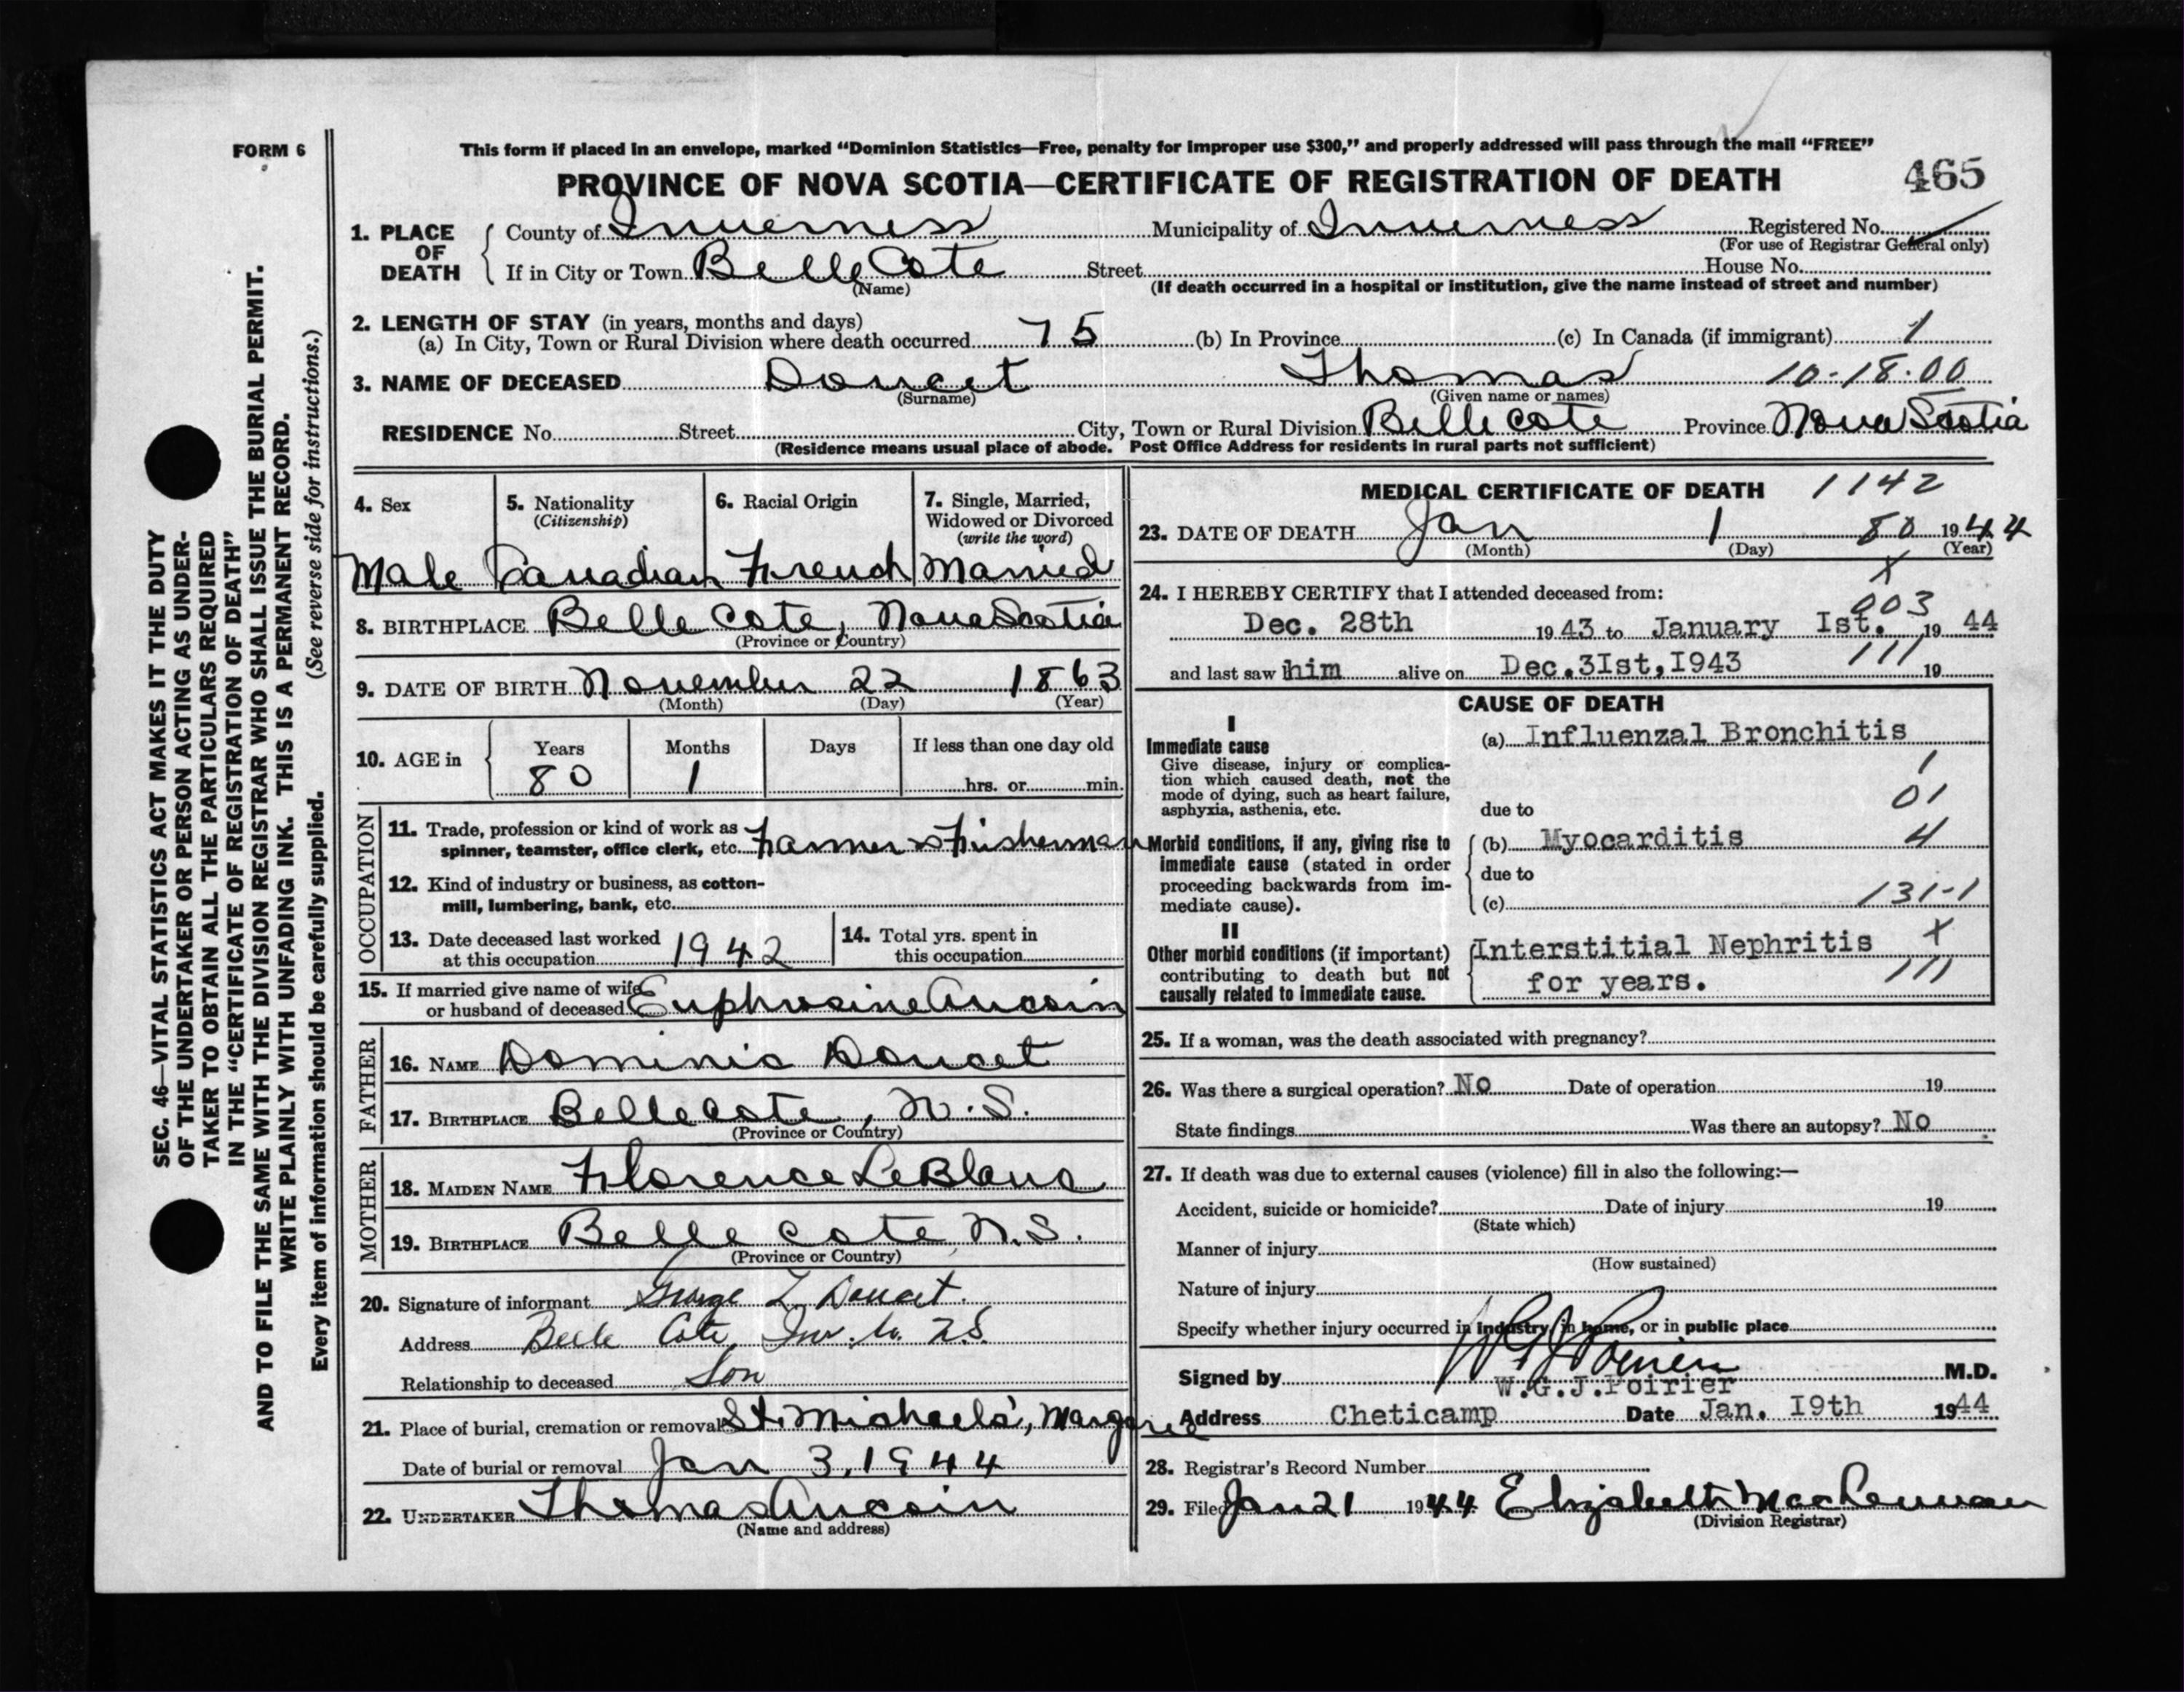 FORM 6
This form if placed in an envelope, marked “Dominion Statistics—Free, penalty for improper use $300,” and properly addressed will pass through the mail “FREE”
PROVINCE OF NOVA SCOTIA—CERTIFICATE OF REGISTRATION OF DEATH 465
1. PLACE OF DEATH
County of Inverness Municipality of Inverness Registered No.
(For use of Registrar General only)
If in City or Town Belle Cote Street House No.
(Name) (If death occurred in a hospital or institution, give the name instead of street and number)
2. LENGTH OF STAY (in years, months and days)
(a) In City, Town or Rural Division where death occurred 75 (b) In Province (c) In Canada (if immigrant) 1
3. NAME OF DECEASED Doucet Thomas 10-18-00
(Surname) (Given name or names)
RESIDENCE No. Street City, Town or Rural Division Belle Cote Province Nova Scotia
(Residence means usual place of abode. Post Office Address for residents in rural parts not sufficient)
4. Sex
Male
5. Nationality
(Citizenship)
Canadian
6. Racial Origin
French
7. Single, Married,
Widowed or Divorced
(write the word)
Married
8. BIRTHPLACE Belle Cote, Nova Scotia
(Province or Country)
9. DATE OF BIRTH November 22 1863
(Month) (Day) (Year)
10. AGE in
Years Months Days If less than one day old
80 1 hrs. or min.
OCCUPATION
11. Trade, profession or kind of work as
spinner, teamster, office clerk, etc. Farmer & Fisherman
12. Kind of industry or business, as cotton-
mill, lumbering, bank, etc.
13. Date deceased last worked
at this occupation 1942
14. Total yrs. spent in
this occupation
15. If married give name of wife
or husband of deceased Euphrosine Aucoin
FATHER
16. NAME Dominic Doucet
17. BIRTHPLACE Belle Cote, N.S.
(Province or Country)
MOTHER
18. MAIDEN NAME Florence LeBlanc
19. BIRTHPLACE Belle Cote, N.S.
(Province or Country)
20. Signature of informant George L Doucet.
Address Belle Cote, Inv. Co. N S
Relationship to deceased Son
21. Place of burial, cremation or removal St. Michaels', Margaree
Date of burial or removal Jan 3, 1944
22. UNDERTAKER Thomas Aucoin
(Name and address)
MEDICAL CERTIFICATE OF DEATH 1142
23. DATE OF DEATH Jan 1 80 1944
(Month) (Day) (Year)
X
24. I HEREBY CERTIFY that I attended deceased from:
003
Dec. 28th 1943 to January Ist. 19 44
111
and last saw him alive on Dec.3Ist,I943 19
CAUSE OF DEATH
I
Immediate cause
Give disease, injury or complica-
tion which caused death, not the
mode of dying, such as heart failure,
asphyxia, asthenia, etc.
(a) Influenzal Bronchitis
1
01
due to
Morbid conditions, if any, giving rise to
immediate cause (stated in order
proceeding backwards from im-
mediate cause).
(b) Myocarditis 4
due to
(c) 131-1
II
Other morbid conditions (if important)
contributing to death but not
causally related to immediate cause.
Interstitial Nephritis X
for years. 111
25. If a woman, was the death associated with pregnancy?
26. Was there a surgical operation? No Date of operation 19
State findings Was there an autopsy? No
27. If death was due to external causes (violence) fill in also the following:—
Accident, suicide or homicide? Date of injury 19
(State which)
Manner of injury
(How sustained)
Nature of injury
Specify whether injury occurred in industry, in home, or in public place
Signed by W G J Poirier M.D.
W.G.J.Poirier
Address Cheticamp Date Jan. I9th 1944
28. Registrar's Record Number
29. Filed Jan 21 1944 Elizabeth MacLennan
(Division Registrar)
SEC. 46—VITAL STATISTICS ACT MAKES IT THE DUTY
OF THE UNDERTAKER OR PERSON ACTING AS UNDER-
TAKER TO OBTAIN ALL THE PARTICULARS REQUIRED
IN THE “CERTIFICATE OF REGISTRATION OF DEATH”
AND TO FILE THE SAME WITH THE DIVISION REGISTRAR WHO SHALL ISSUE THE BURIAL PERMIT.
WRITE PLAINLY WITH UNFADING INK. THIS IS A PERMANENT RECORD.
Every item of information should be carefully supplied. (See reverse side for instructions.)